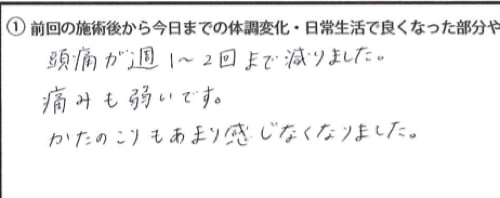 ① 前回の施術後から今日までの体調変化・日常生活で良くなった部分や
頭痛が週1〜2回まで減りました。
痛みも弱いです。
かたのこりもあまり感じなくなりました。